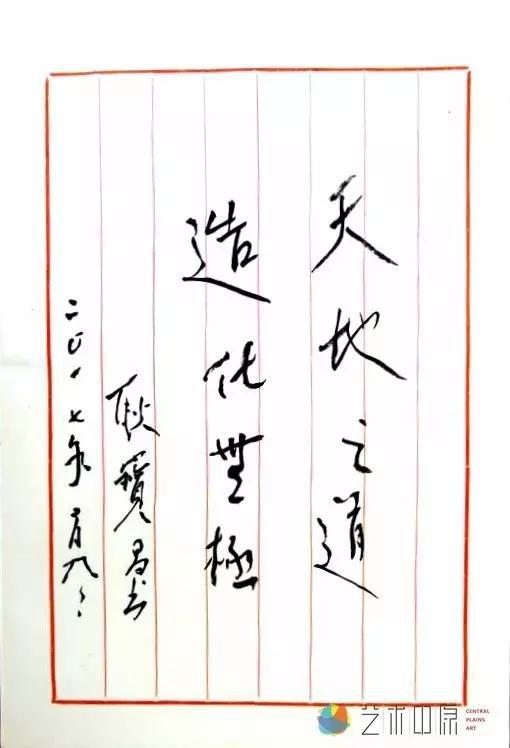 天地之道
造化無極
耿寶昌书
二〇一七年
艺术中原
CENTRAL
PLAINS
ART